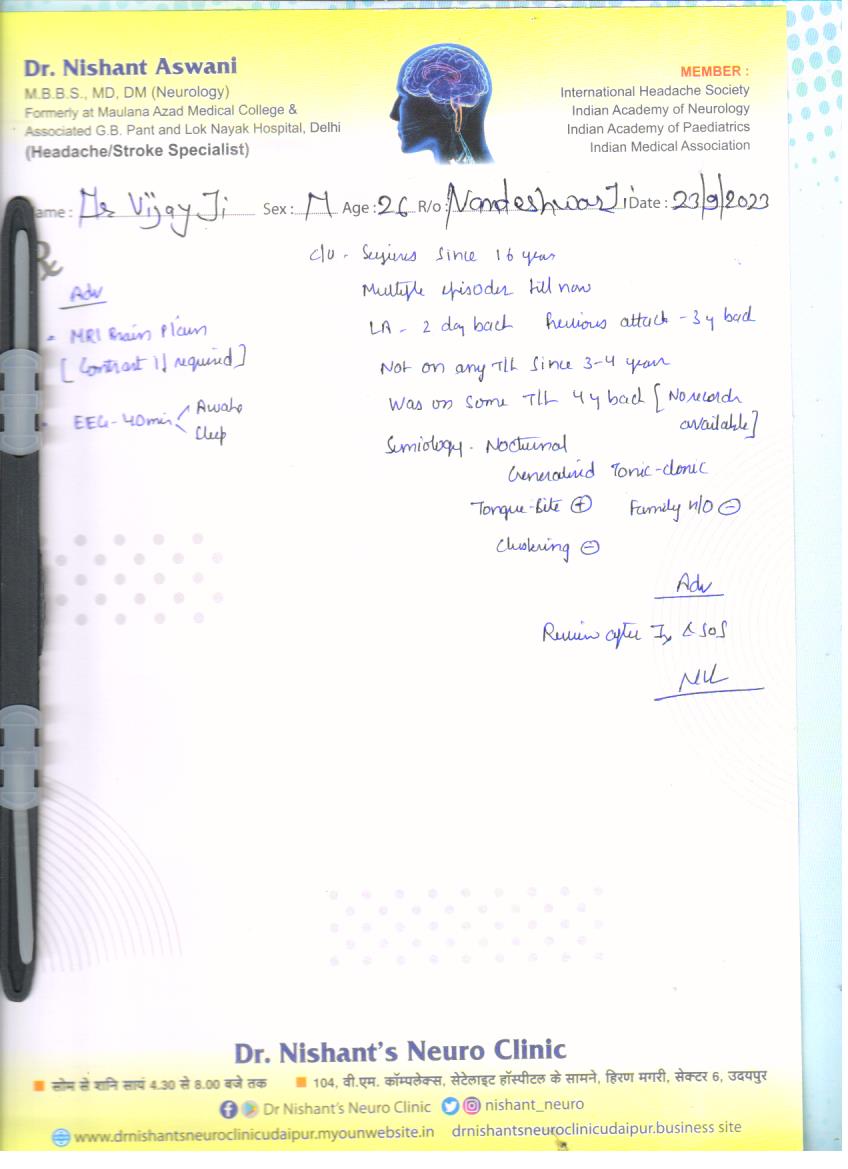 Dr. Nishant Aswani
M.B.B.S., MD, DM (Neurology)
Formerly at Maulana Azad Medical College &
Associated G.B. Pant and Lok Nayak Hospital, Delhi
(Headache/Stroke Specialist)
MEMBER :
International Headache Society
Indian Academy of Neurology
Indian Academy of Paediatrics
Indian Medical Association
ame : Mr Vijay Ji Sex : M Age : 26 R/o : Nandeshwar Ji Date : 23/9/2023
Rx
c/o - Seizures since 16 year
Multiple episodes till now
LA - 2 day back Previous attack - 3 y back
Not on any T/t since 3-4 year
Was on some T/t 4 y back [No records
available]
Semiology - Nocturnal
Generalised Tonic-clonic
Tongue-Bite ⊕ Family H/O ⊖
Clustering ⊖
Adv
- MRI Brain Plain
[Contrast if required]
- EEG - 40min < Awake
Sleep
Adv
Review after Ix & SOS
Dr. Nishant's Neuro Clinic
सोम से शनि सायं 4.30 से 8.00 बजे तक
104, वी.एम. कॉम्पलेक्स, सेटेलाइट हॉस्पीटल के सामने, हिरण मगरी, सेक्टर 6, उदयपुर
Dr Nishant's Neuro Clinic nishant_neuro
www.drnishantsneuroclinicudaipur.myounwebsite.in drnishantsneuroclinicudaipur.business site